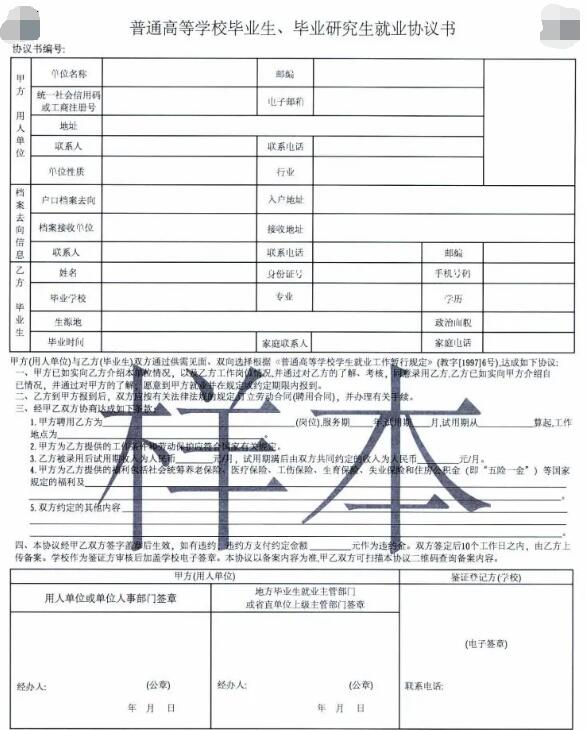 普通高等学校毕业生、毕业研究生就业协议书
协议书编号:
甲方 用人单位
单位名称 邮编
统一社会信用码或工商注册号 电子邮箱
地址
联系人 联系电话
单位性质 行业
档案去向信息
户口档案去向 入户地址
档案接收单位 接收地址
联系人 联系电话 邮编
乙方 毕业生
姓名 身份证号 手机号码
毕业学校 专业 学历
生源地 政治面貌
毕业时间 家庭联系人 家庭电话
甲方(用人单位)与乙方(毕业生)双方通过供需见面、双向选择根据《普通高等学校学生就业工作暂行规定》(教字[1997]6号),达成如下协议:
一、甲方已如实向乙方介绍本单位情况,以及乙方工作岗位情况,并通过对乙方的了解、考核,同意录用乙方,乙方已如实向甲方介绍自
己情况,并通过对甲方的了解,愿意到甲方就业并在规定或约定期限内报到。
二、乙方到甲方报到后,双方应按有关法律法规的规定订立劳动合同(聘用合同),并办理有关手续。
三、经甲乙双方协商达成如下条款:
1.甲方聘用乙方为 (岗位),服务期 年,试用期 月,试用期从 算起,工作
地点为 。
2.甲方为乙方提供的工作条件和劳动保护应符合国家有关规定。
3.乙方被录用后试用期收入为人民币 元/月,试用期满后由双方共同约定的收入为人民币 元/月。
4.甲方为乙方提供的福利包括社会统筹养老保险、医疗保险、工伤保险、生育保险、失业保险和住房公积金(即“五险一金”)等国家
规定的福利及
5.双方约定的其他内容
四、本协议经甲乙双方签字盖章后生效,如有违约,违约方支付约定金额 元作为违约金。双方签定后10个工作日之内,由乙方上
传备案。学校作为鉴证方审核后加盖学校电子签章。本协议以备案内容为准,甲乙双方可扫描本协议二维码查询备案内容。
样本
甲方(用人单位) 鉴证登记方(学校)
用人单位或单位人事部门签章
地方毕业生就业主管部门
或省直单位上级主管部门签章
(电子签章)
经办人: (公章) 经办人: (公章) 联系电话:
年 月 日 年 月 日